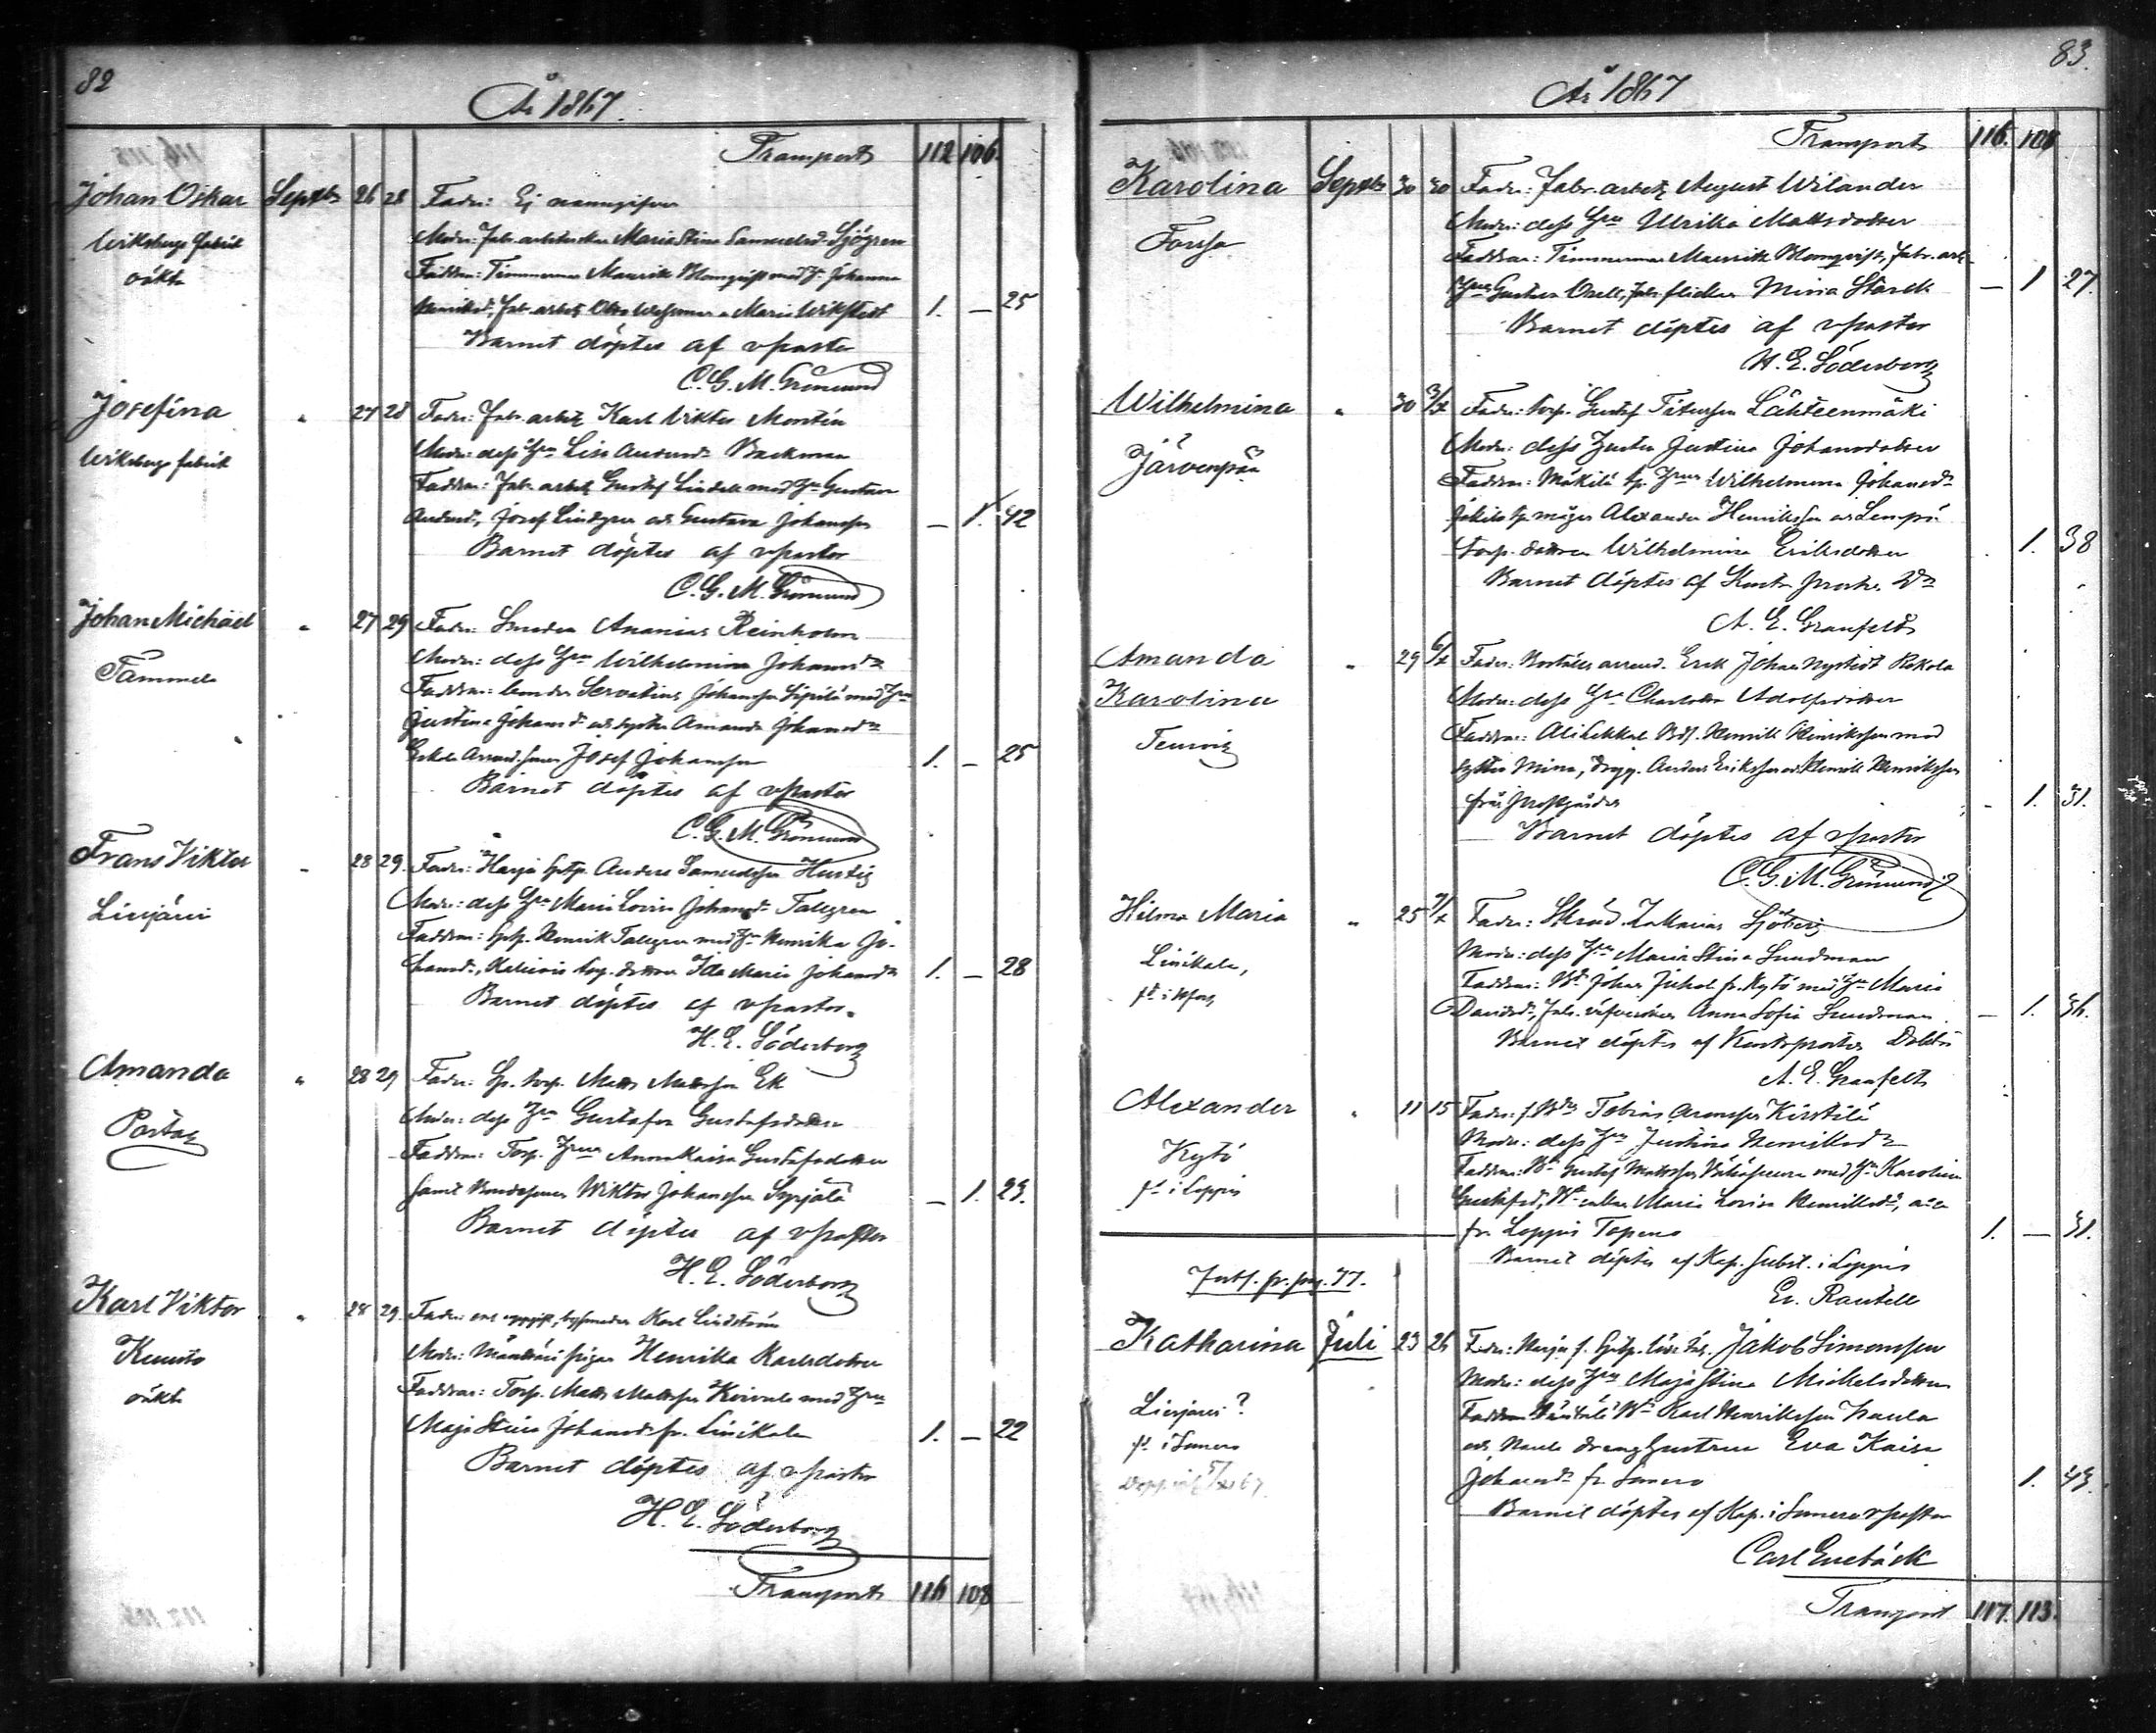 82
År 1867.
Transport 112 106.
Johan Oskar Septbr 26 28 Fader: Ej namngifven
Wiksbergs fabrik Moder: Fabr. arbeterskan Maria Stina Samuelsd. Sjögren
oäkta Faddrar: Timmerman Maurits Blomqvist med H. Johanna
Henriksdr, Fab. arbet. Otto Wessman o Maria Wikstedt 1. — 25
Barnet döptes af vPastor
C. G. M. Grönlund
Josefina " 27 28 Fader: Fabr. arbet. Karl Viktor Montin
Wiksbergs fabrik Moder: dess Hu Lisa Andersdr Backman
Faddrar: Fab. arbet. Gustaf Lindell med Hu Gustava
Andersd., Josef Lindgren och Gustava Johansson — 1. 42
Barnet döptes af vPastor
C. G. M. Grönlund
Johan Michael " 27 29 Fader: Smeden Ananias Reinholm
Tammela Moder: dess Hu Wilhelmina Johansdr
Faddrar: bonden Servatius Johansson Sipilä med Hu
Justina Johansdr och dygden Amanda Johansdr
Arrend. sonen Josef Johansson 1. — 25
Barnet döptes af vPastor
C. G. M. Grönlund
Frans Viktor " 28 29. Fader: Harja Sptp. Anders Samuelsson Hurtig
Liesjärvi Moder: dess Hu Maria Lovisa Johansdr Tallgren
Faddrar: Sptp. Henrik Tallgren med Hu Henrika Jo-
hansdr, torp. dottren Ida Maria Johansdr 1. — 28
Barnet döptes af vPastor.
H. E. Söderborg
Amanda " 28 29 Fader: Sp. torp. Matts Mattsson Ek
Portas Moder: dess Hu Gustafva Gustafsdotter
Faddrar: Torp. Hru Anna Kaisa Gustafsdotter
samt Bondesonen Wiktor Johansson Syrjälä — 1. 23.
Barnet döptes af vPastor
H. E. Söderborg
Karl Viktor " 28 29. Fader: enl uppgift, byssmeden Karl Lindström
Kuusto Moder: pigan Henrika Karlsdotter
oäkta Faddrar: Torp. Matts Mattsson Koivula med Hru
Maja Stina Johansd. fr. Linikkala 1. — 22
Barnet döptes af vPastor
H. E. Söderborg
Transport 116 108
83.
År 1867
Transport 116. 108
Karolina Septbr 30 30 Fader: Fabr. arbet. August Wilander
Forssa Moder: dess Hru Ulrika Mattsdotter
Faddrar: Timmerman Maurits Blomqvist, fabr. arb-
Gustava Orell, fabr. flickan Mina Starck — 1 27.
Barnet döptes af vPastor
H. E. Söderborg
Wilhelmina " 30 3/X Fader: torp. Gustaf Titusson Lähteenmäki
Järvenpää Moder: dess Hustru Justina Johansdotter
Faddrar: Mäkilä tp. Hrun Wilhelmina Johansdr
Jokila tp. mågen Alexander Henriksson och Lempä
torp. dottren Wilhelmina Eriksdotter . 1. 38
Barnet döptes af Kontr. prosten Dr
A. E. Granfelt
Amanda " 29 6/X Fader: Boställs arrend. Erik Johan Nystedt Kokola
Karolina Moder: dess Hru Charlotta Adolfsdotter
Teuro Faddrar: Alikekkal Bds. Henrik Henriksson med
dygden Mina, Dräng. Anders Eriksson och Henrik Henriksson
från Prestgården - 1. 31.
Barnet döptes af vPastor
C. G. M. Grönlund
Hilma Maria " 25 7/X Fader: Skräd. Zakarias Sjöberg
Linikkala, Moder: dess Hru Maria Stina Sundman
Faddrar: Bd. Johan Juhol fr. Kytö med Hu Maria
Davidsd., Fab. väfverskan Anna Sofia Sundman — 1. 36.
Barnet döptes af Kontr. prosten Doktor
A. E. Granfelt
Alexander " 11 15 Fader: f. Bds Tobias Aronsson Kirstilä
Kytö Moder: dess Hru Justina Henriksdr
fd. i Loppis Faddrar: Bd. Gustaf Mattsson med Hu Karolina
Gustafsd, Maria Lovisa Henriksdr, a–a
fr. Loppis Topeno 1. — 31.
Barnet döptes af Kap. subst. i Loppis
Er. Rautell
Infs. fr. pag. 77.
Katharina Juli 23 26 Fader: Harja f. Sptp. Jakob Simonsson
Liesjärvi? Moder: dess Hru Maja Stina Michelsdotter
fd. i Somero Faddrar: Bd Karl Henriksson Naula
och Naula dräng hustrun Eva Kaisa
Johansdr fr. Somero 1. 43.
Barnet döptes af Kap. i Somero vPastor
Carl Enebäck
Transport 117. 113.